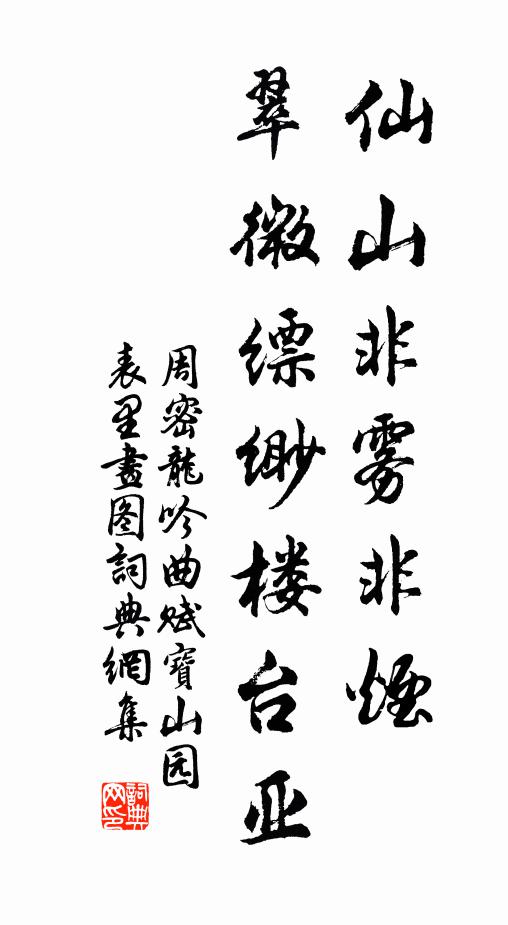 仙山非雾非烟
翠微缥缈楼台亚
周密龍吟曲赋寶山园
表里畫图詞典網集
詞典网印